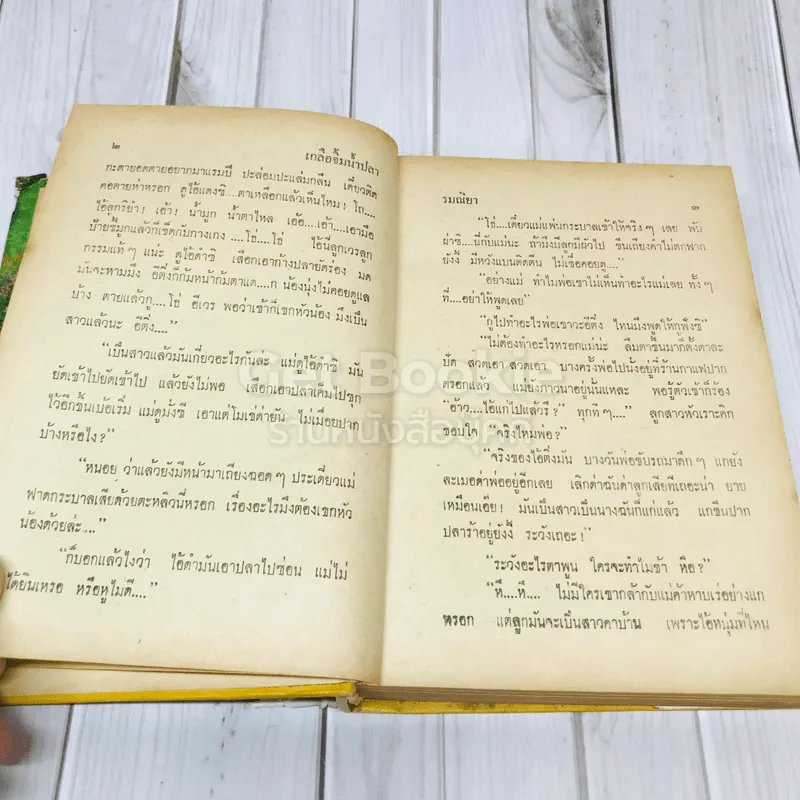 ๒ เกลือจิ้มน้ำปลา
กะตายอดตายอยากมาแรมปี ปะส่อมปะแส่มกลืน เดี๋ยวติด
คอตายห่าหรอก ดูไอ้แดงซิ ....ตาเหลือกแล้วเห็นไหม! โถ....
ไอ้ลูกริยำ! เอ้า! น้ำมูก น้ำตาไหล เอ้อ....เอ้า....เอามือ
ป้ายขี้มูกแล้วก็เช็ดกับกางเกง ....โธ่....โธ่ ไอ้นี่ลูกเวรลูก
กรรมแท้ๆ แน่ะ ดูไอ้ดำซิ เลือกเอาก้างปลายัดร่อง มด
มันจะหามมึง อีติ๋งก็ก้มหน้าก้มตาแด....ก น้องนุ่งไม่คอยดูแล
บ้าง ตายแล้วกู....โธ่ อีเวร พอว่าเข้าก็เขกหัวน้อง มึงเป็น
สาวแล้วนะ อีติ๋ง....”
“เป็นสาวแล้วมันเกี่ยวอะไรกันล่ะ แม่ดูไอ้ดำซิ มัน
ยัดเข้าไปยัดเข้าไป แล้วยังไม่พอ เลือกเอาปลาเค็มไปซุก
ไว้อีกชิ้นเบ้อเริ่ม แม่ดูมั่งซี เอาแต่โมเขด่ายัน ไม่เมื่อยปาก
บ้างหรือไง?”
“หนอย ว่าแล้วยังมีหน้ามาเถียงฉอดๆ ประเดี๋ยวแม่
ฟาดกระบาลเสียด้วยตะหลิวนี่หรอก เรื่องอะไรมึงต้องเขกหัว
น้องด้วยล่ะ....”
“ก็บอกแล้วไงว่า ไอ้ดำมันเอาปลาไปซ่อน แม่ไม่
ได้ยินเหรอ หรือหูไม่ดี....”
รมณียา ๓
“โธ่....เดี๋ยวแม่แพ่นกระบาลเข้าให้จริงๆ เลย พับ
ผ่าซิ....นี่กับแม่นะ ถ้ามึงมีลูกมีผัวไป ขืนเถียงคำไม่ตกฟาก
ยังงี้ มีหวังแบนติดตีน ไม่เชื่อคอยดู....”
“อย่างแม่ ทำไมพ่อเขาไม่เห็นทำอะไรแม่เลย ทั้งๆ
ที่....อย่าให้พูดเลย”
“กูไปทำอะไรพ่อเขาวะอีติ๋ง ไหนมึงพูดให้กูฟังซิ”
“ไม่ต้องทำอะไรหรอกแม่น่ะ ลืมตาขึ้นมาก็ตั้งตาละ
ปัด สวดเอา สวดเอา บางครั้งพ่อไปนั่งอยู่ที่ร้านกาแฟปาก
ตรอกแล้ว แม่ยังภาวนาอยู่นั้นแหละ พอรู้ตัวเข้าก็ร้อง
“อ้าว....ไอ้แก่ไปแล้วรึ?” ทุกที่ๆ....” ลูกสาวหัวเราะคิก
ชอบใจ “จริงไหมพ่อ?”
“จริงของไอ้ติ๋งมัน บางวันพ่อขับรถมาดึกๆ แกยัง
ละเมอด่าพ่ออยู่อีกเลย เลิกด่าฉันด่าลูกเสียทีเถอะน่า ยาย
เหมือนเอ๊ย! มันเป็นสาวเป็นนางฉันก็แก่แล้ว แกขืนปาก
ปลาร้าอยู่ยังงี้ ระวังเถอะ!”
“ระวังอะไรตาพูน ใครจะทำไมข้า หือ?”
“หึ....หึ.... ไม่มีใครเขากล้ากับแม่ค้าหาบเร่อย่างแก
หรอก แต่ลูกมันจะเป็นสาวคาบ้าน เพราะไอ้หนุ่มที่ไหน
Get Bookie
ร้านหนังสือลุงคิดดี